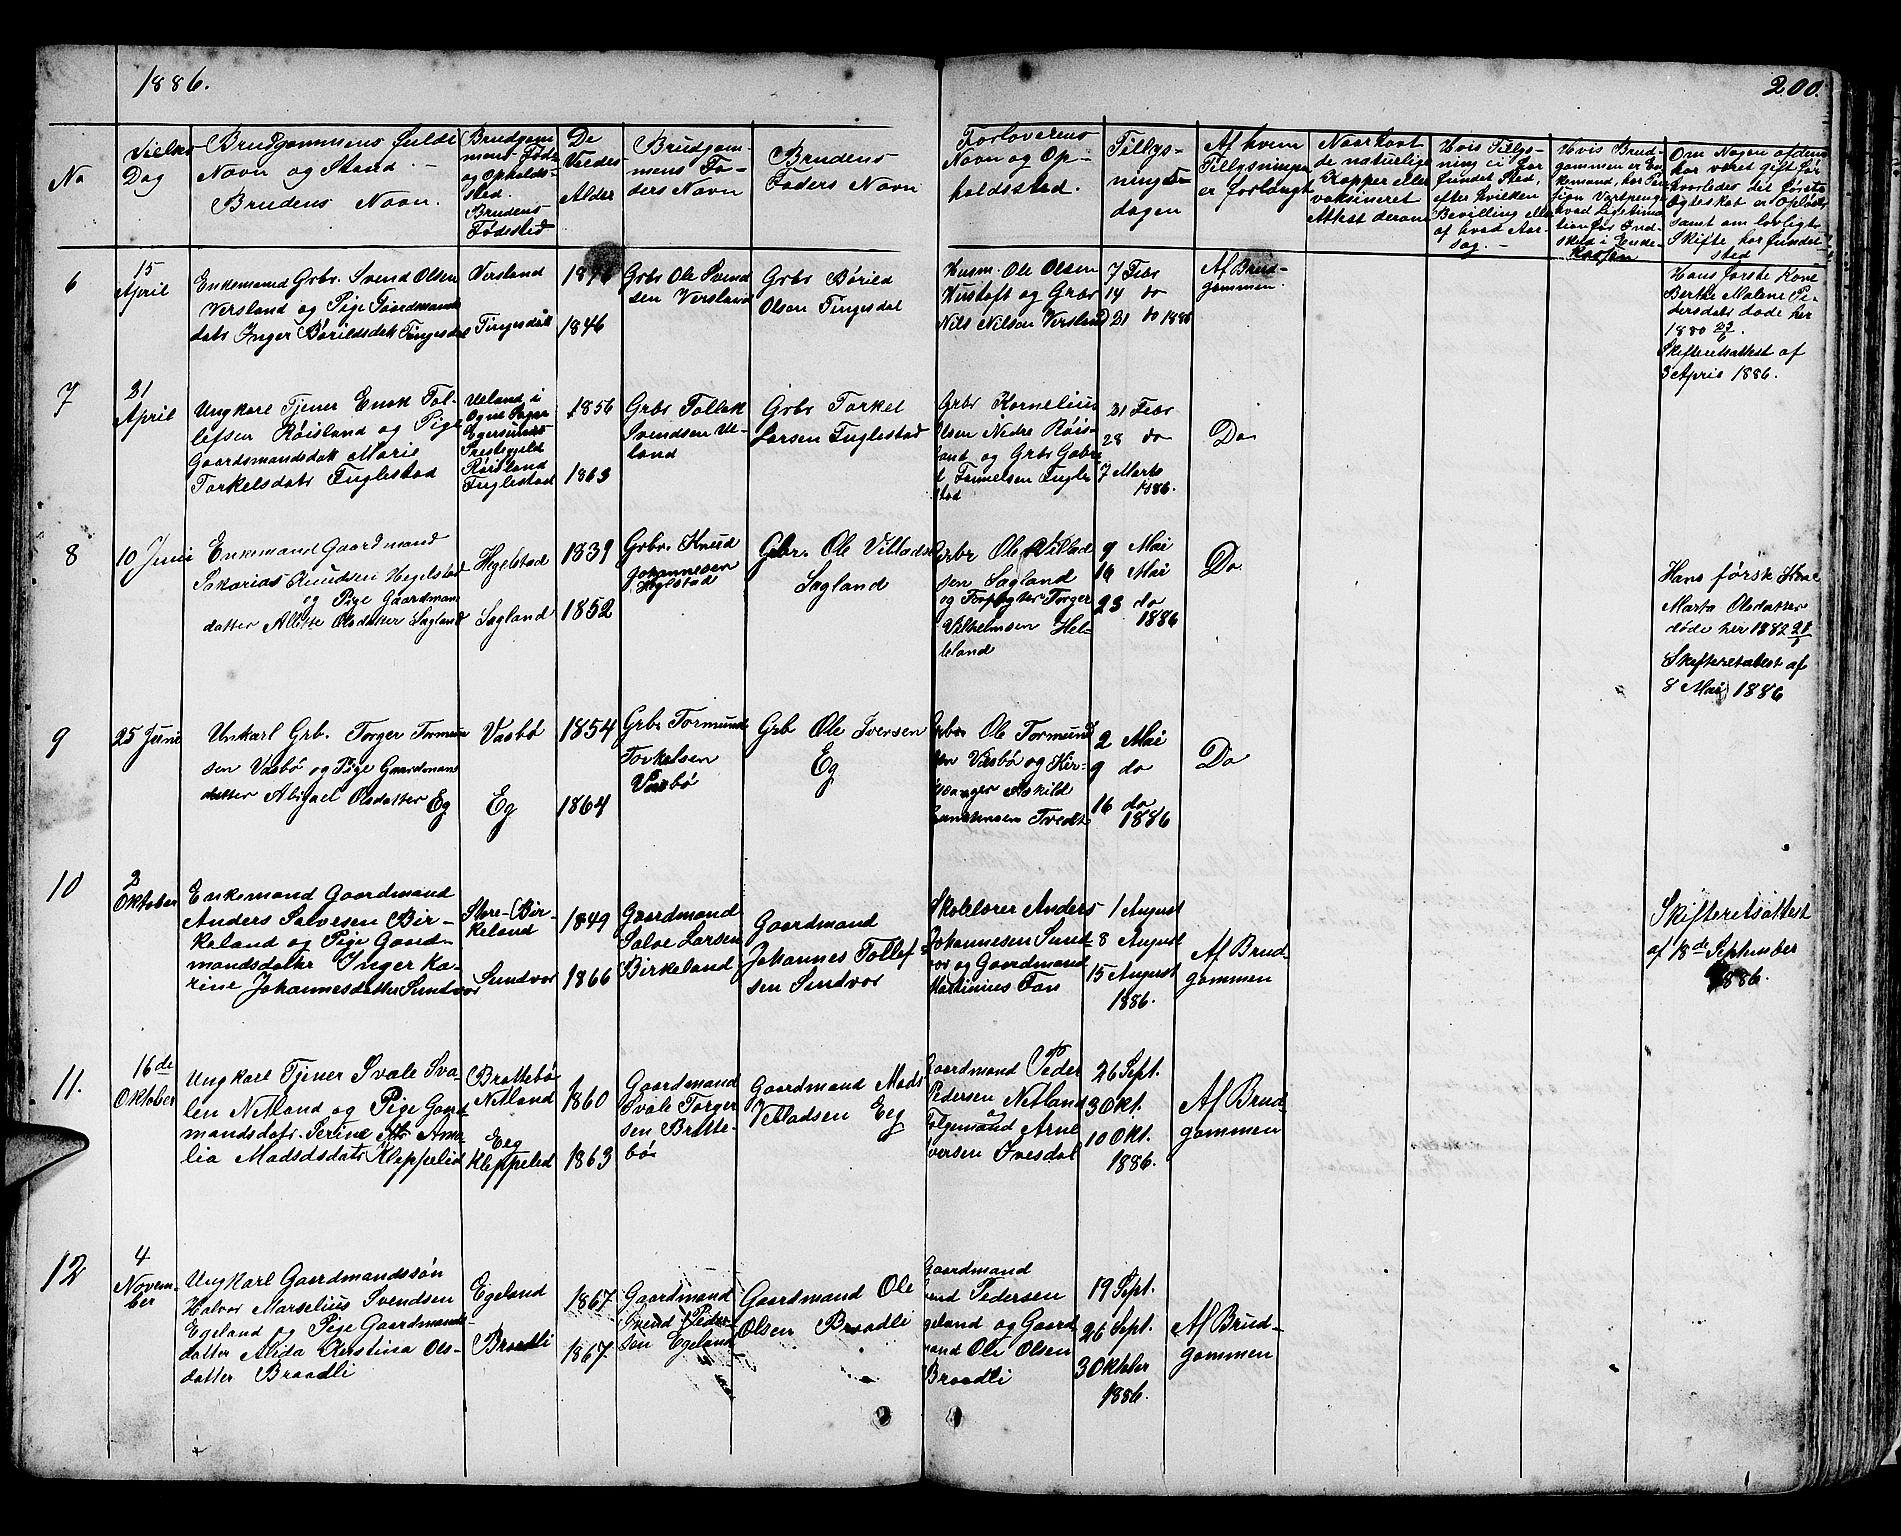 1886.
200.
No
Vielses
Dag
Brudgommens fulde
Navn og Stand. —
Brudens Navn.
Brudgom
mens Føde
og Opholds-
sted.
Brudens
Fødested
De
Viedes
Alder
Brudgom-
mens Fa-
ders Navn
Brudens
Faders Navn
Forloverens
Navn og Op-
holdssted.
Tillys-
nings-
dagen
Af hvem
Tillysningen
er forlangt
Naar havt
de naturlige
Kopper eller
vaksineret
Attest derom
Hvis Tillys-
ning ei har
fundet Sted,
efter hvilken
Bevilling eller
af hvad Aar-
sag. —
Hvis Brud-
gommen er En-
kemand, har
hvad Legitima
tion for Ind-
skud i Enke-
Kassen
Om Nogen af dem
har været gift før
hvorledes det første
Ægteskab er opløst,
samt om lovligt
Skifte har fundet
sted
6
15
April
Enkemand Grbr. Svend Olsen
Versland og Pige Gaardmands
datr Inger Børildsdatr Tingesdal
Versland
Tingesdal
1846
Grbr Ole Svend
sen Versland
Grbr Børild
Olsen Tingesdal
Husm. Ole Olsen
Hustoft og Grbr
Nils Nilsen Versland
7 Febr
14 do
21 do 1886
Af Brud-
gommen.
Hans første Kone
Berthe Malene Pe-
dersdatr døde her
1880
Skifteretsattest af
3 April 1886.
7
21
April
Ungkarl Tjener Enok Tol-
lefsen Røisland og Pige
Gaardmandsdatr Marie
Torkelsdatr Fuglestad
Ueland i
Ogne Sogn
Egersunds
Prestegjeld
Røisland
Fuglestad
1856
1863
Grbr Tollak
Svendsen Ue-
land
Grbr Torkel
Larsen Fuglestad
Grbr Kornelius
Olsen Nedre Røis-
land og Grbr Gabri
el Tønnesen Fugle
stad
21 Febr
28 do
7 Marts
1886.
Do
8
10 Juni
Enkemand Gaardmand
Sakarias Knudsen Hegelstad
og Pige Gaardman
datter Allette Olsdatter Sagland
Hegelstad
Sagland
1839
1852
Grbr. Knud
Johannesen
Hegelstad
Grbr. Ole Villads
Sagland
Grbr Ole Villad
sen Sagland
og Forpagter Torger
Vilhelmsen Hel-
leland
9 Mai
16 Mai
23 do
1886
Do.
Hans første Kone
Marta Olsdatter
døde her 1882
Skifteretsattest af
8 Mai 1886
9
25 Juni
Unkarl Grb. Torger Tormun
sen Vasbø og Pige Gaardman
datter Abigael Olsdatter Eg
Vasbø
Eg
1854
1864
Grbr Tormund
Torkelsen
Vasbø
Grb Ole Iversen
Eg
Grbr Ole Tormund
sen Vasbø og Kir-
kesanger Askild
Tvedt
2 Mai
9 do
16 do
1886
Do
10
2
Oktober
Enkemand Gaardmand
Anders Salvesen Bir-
keland og Pige Gaard-
mandsdatter Inger Ka-
rine Johannesdatter Sundvor
Store-Bir-
keland
Sundvor
1849
1866
Gaardmand
Salve Larsen
Birkeland
Gaardmand
Johannes Tollef
sen Sundvor
Skolelærer Anders
Johannesen Sund-
vor og Gaardmand
Martinius Fan
1 August
8 August
15 August
1886.
Af Brud-
gommen
Skifteretsattest
af 18de September
1886.
11.
16de
Oktober
Ungkarl Tjener Svale Sva-
len Netland og Pige Gaard
mandsdatr. Serine Ama-
lia Madsdsdatr Kleppelid
Brattebø
Netland
Eeg
Kleppelid
1860
1863
Gaardmand
Svale Torger
sen Bratte-
bø
Gaardmand Mads
Villadsen Eeg
Gaardmand Peder
Pedersen Netland
og
Følgemand Arne
Iversen Ivesdal
26 Sept.
3 Okt.
10 Okt.
1886.
Af Brud-
gommen
12
4
Novem-
ber
Ungkarl Gaardmandssøn
Halvor Marselius Svendsen
Egeland og Pige Gaardmands-
datter Alida Kerstina Ols-
datter Braadli
Egeland
Braadli
1867
1867.
Gaardmand
Svend Peder-
sen Egeland
Gaardmand Ole
Olsen Braadli
Gaardmand
Svend Pedersen
Egeland og Gaard
mand Ole Olsen
Braadli
19 Sept.
26 Sept.
3 Oktbr
1886.
Af Brud-
gommen